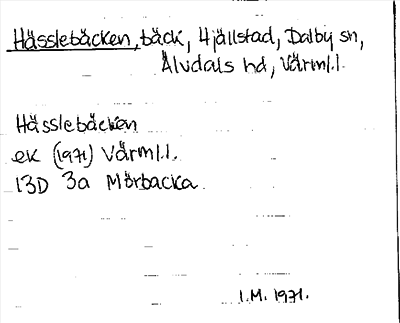 Hässlebäcken, bäck, Hjällstad, Dalby sn,
Älvdals hd, Värml.l.
Hässlebäcken
ek (1971) Värml.l.
13D 3a Mörbacka
I.M. 1971.